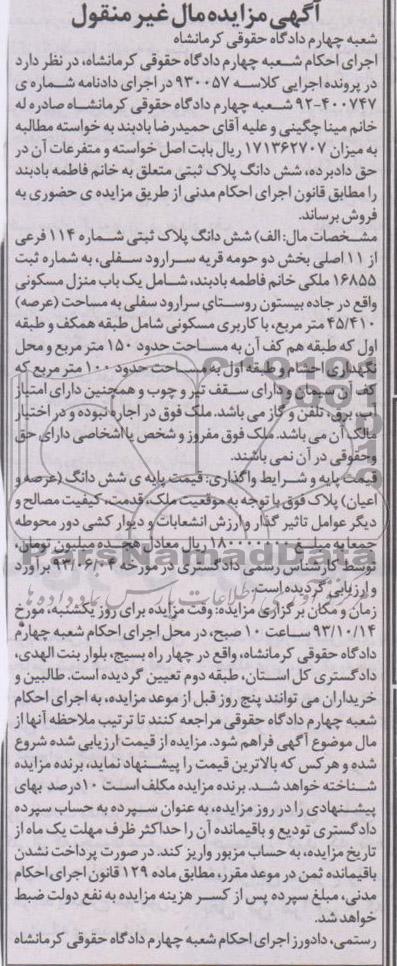 آگهی مزایده مال غیر منقول
شعبه چهارم دادگاه حقوقی کرمانشاه
اجرای احکام شعبه چهارم دادگاه حقوقی کرمانشاه، در نظر دارد
در پرونده اجرایی کلاسه ۹۳۰۰۵۷ در اجرای دادنامه شماره ی
۹۲-۴۰۰۷۴۷ شعبه چهارم دادگاه حقوقی کرمانشاه صادره له
خانم مینا چگینی و علیه آقای حمیدرضا بادبند به خواسته مطالبه
به میزان ۱۷۱۳۶۲۷۰۷ ریال بابت اصل خواسته و متفرعات آن در
حق دادبرده، شش دانگ پلاک ثبتی متعلق به خانم فاطمه بادبند
را مطابق قانون اجرای احکام مدنی از طریق مزایده ی حضوری به
فروش برساند.
مشخصات مال: الف) شش دانگ پلاک ثبتی شماره ۱۱۴ فرعی
از ۱۱ اصلی بخش دو حومه قریه سرارود سفلی، به شماره ثبت
۱۶۸۵۵ ملکی خانم فاطمه بادبند، شامل یک باب منزل مسکونی
واقع در جاده بیستون روستای سرارود سفلی به مساحت (عرصه)
۴۵/۴۱۰ متر مربع، با کاربری مسکونی شامل طبقه همکف و طبقه
اول که طبقه هم کف آن به مساحت حدود ۱۵۰ متر مربع و محل
نگهداری احشام و طبقه اول به مساحت حدود ۱۰۰ متر مربع که
کف آن سیمان و دارای سقف تیر و چوب و همچنین دارای امتیاز
آب، برق، تلفن و گاز می باشد. ملک فوق در اجاره نبوده و در اختیار
مالک آن می باشد. ملک فوق مفروز و شخص یا اشخاصی دارای حق
وحقوقی در آن نمی باشند.
قیمت پایه و شرایط واگذاری: قیمت پایه ی شش دانگ (عرصه و
اعیان) پلاک فوق با توجه به موقعیت ملک، قدمت، کیفیت مصالح و
دیگر عوامل تاثیر گذار و ارزش انشعابات و دیوار کشی دور محوطه
جمعا به مبلغ ۱۸۰۰۰۰۰۰۰ ریال معادل هجده میلیون تومان،
توسط کارشناس رسمی دادگستری در مورخه ۹۳/۰۶/۰۴ برآورد
و ارزیابی گردیده است.
زمان و مکان برگزاری مزایده: وقت مزایده برای روز یکشنبه، مورخ
۹۳/۱۰/۱۴ ساعت ۱۰ صبح، در محل اجرای احکام شعبه چهارم
دادگاه حقوقی کرمانشاه، واقع در چهار راه بسیج، بلوار بنت الهدی،
دادگستری کل استان، طبقه دوم تعیین گردیده است. طالبین و
خریداران می توانند پنج روز قبل از موعد مزایده، به اجرای احکام
شعبه چهارم دادگاه حقوقی مراجعه کنند تا ترتیب ملاحظه آنها از
مال موضوع آگهی فراهم شود. مزایده از قیمت ارزیابی شده شروع
شده و هرکس که بالاترین قیمت را پیشنهاد نماید، برنده مزایده
شناخته خواهد شد. برنده مزایده مکلف است ۱۰درصد بهای
پیشنهادی را در روز مزایده، به عنوان سپرده به حساب سپرده
دادگستری تودیع و باقیمانده آن را حداکثر ظرف مهلت یک ماه از
تاریخ مزایده، به حساب مزبور واریز کند. در صورت پرداخت نشدن
باقیمانده ثمن در موعد مقرر، مطابق ماده ۱۲۹ قانون اجرای احکام
مدنی، مبلغ سپرده پس از کسر هزینه مزایده به نفع دولت ضبط
خواهد شد.
رستمی، دادورز اجرای احکام شعبه چهارم دادگاه حقوقی کرمانشاه
ParsNamadData